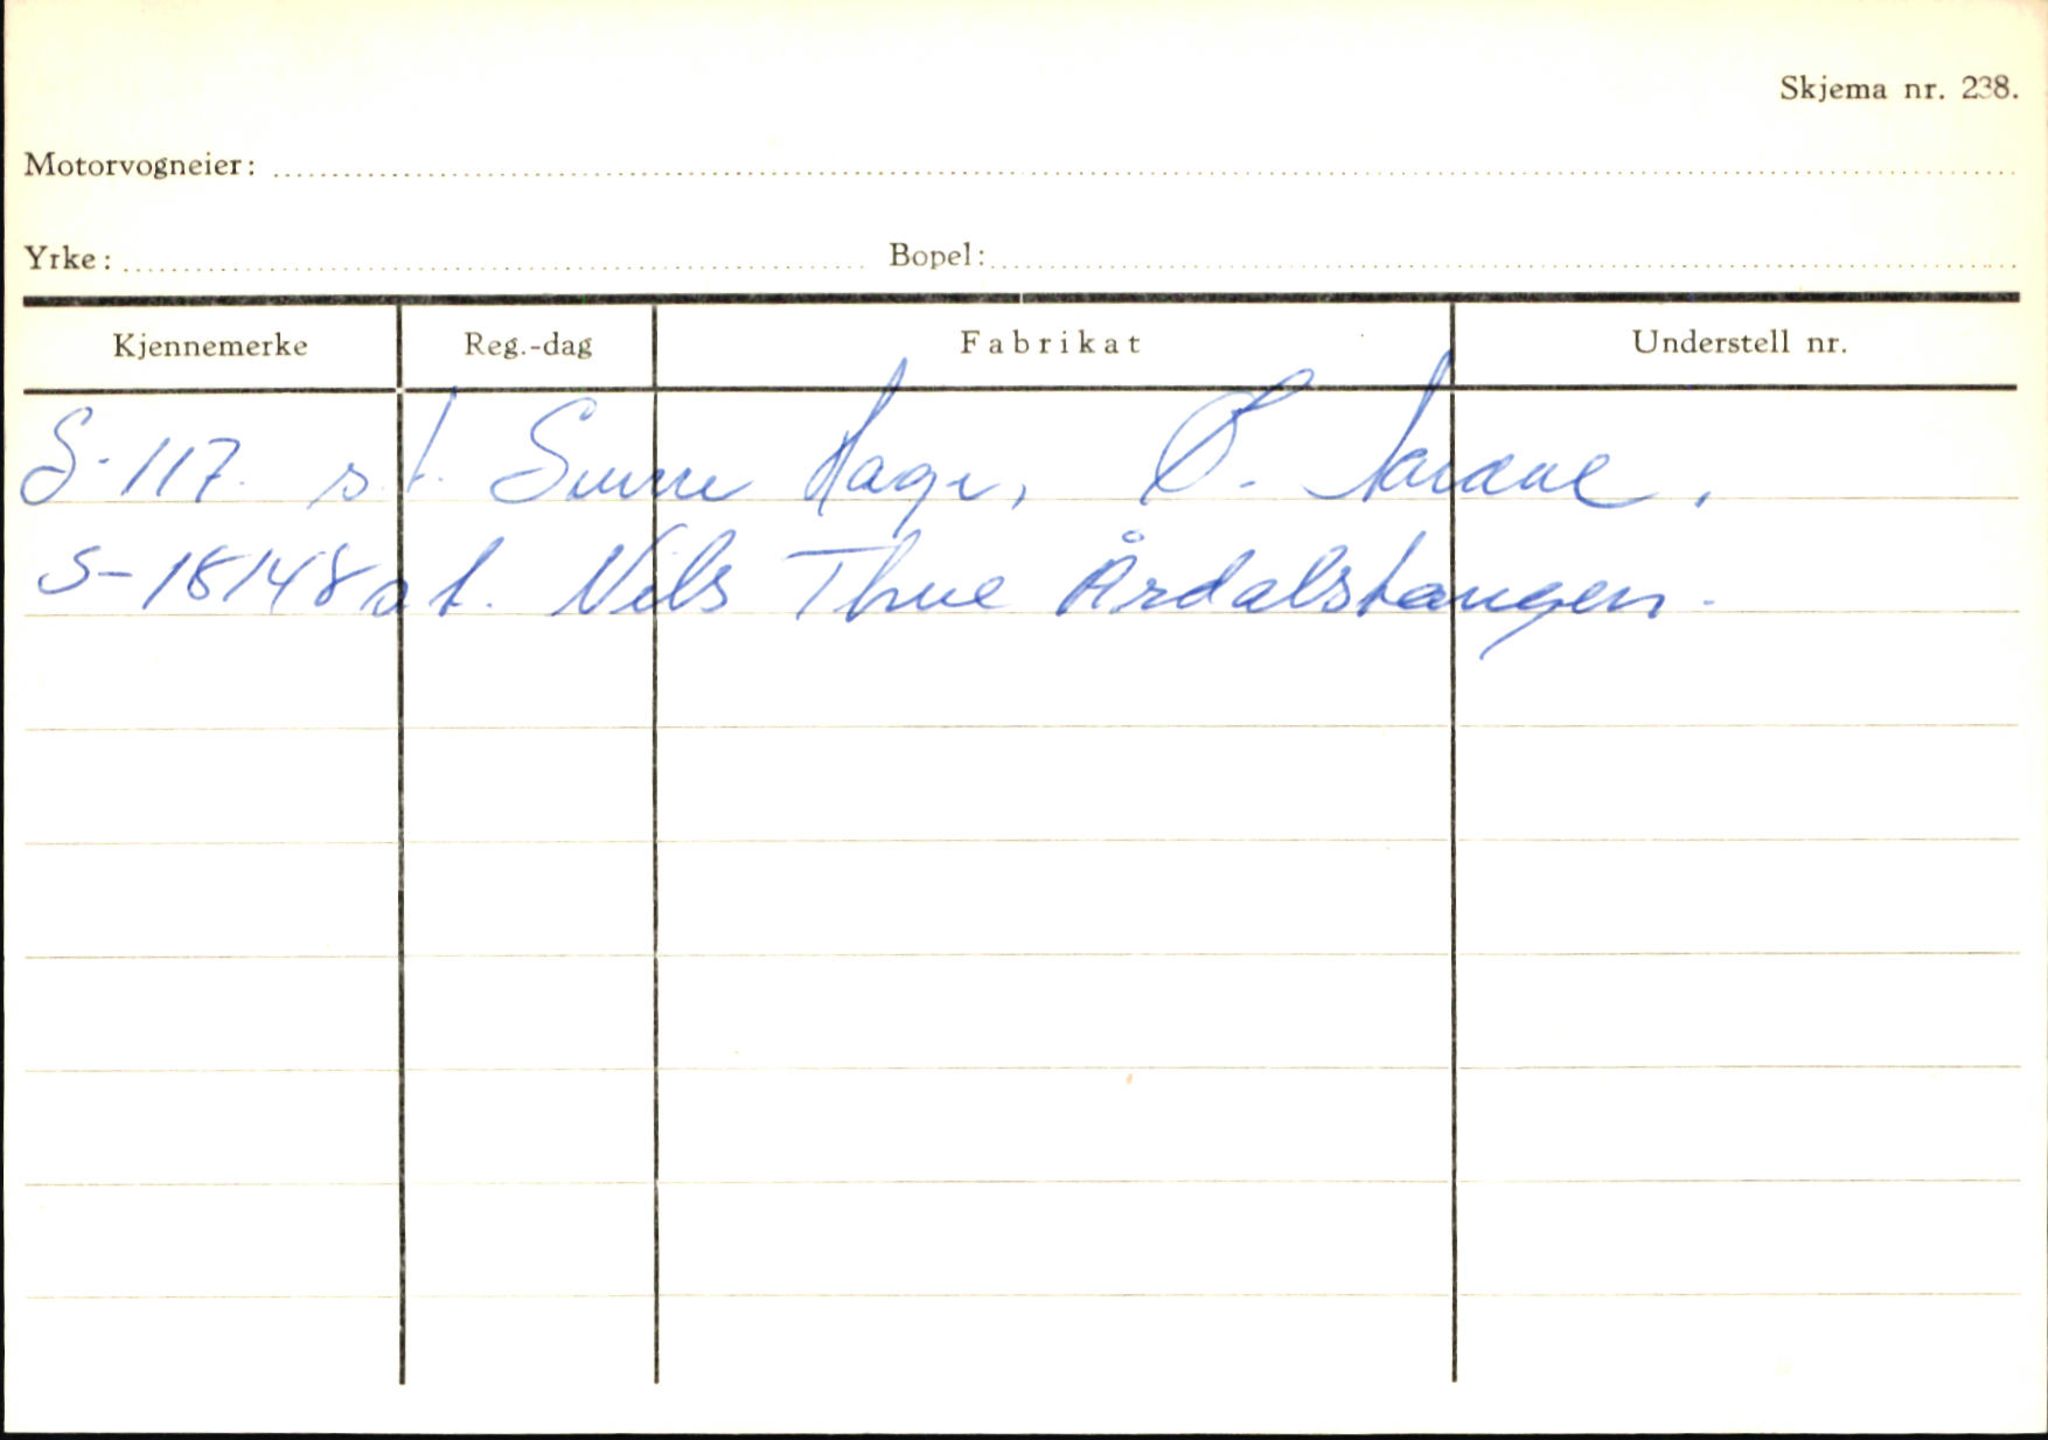 Skjema nr. 238.
Motorvogneier:
Yrke: Bopel:
Kjennemerke Reg.-dag Fabrikat Understell nr.
S-117. s.t. Hage, Ø.
S-18148 s t. Nils Thue Årdalstangen.